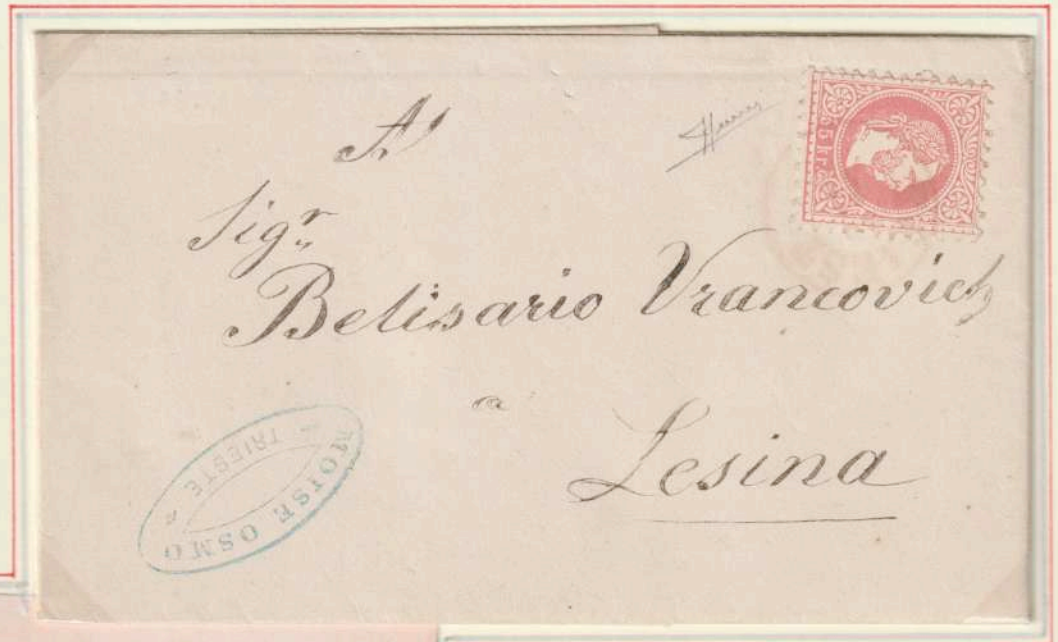 Al
Sigr
Belisario Vrancovich
a
Lesina
5 kr.
MOISE OSMO
TRIESTE